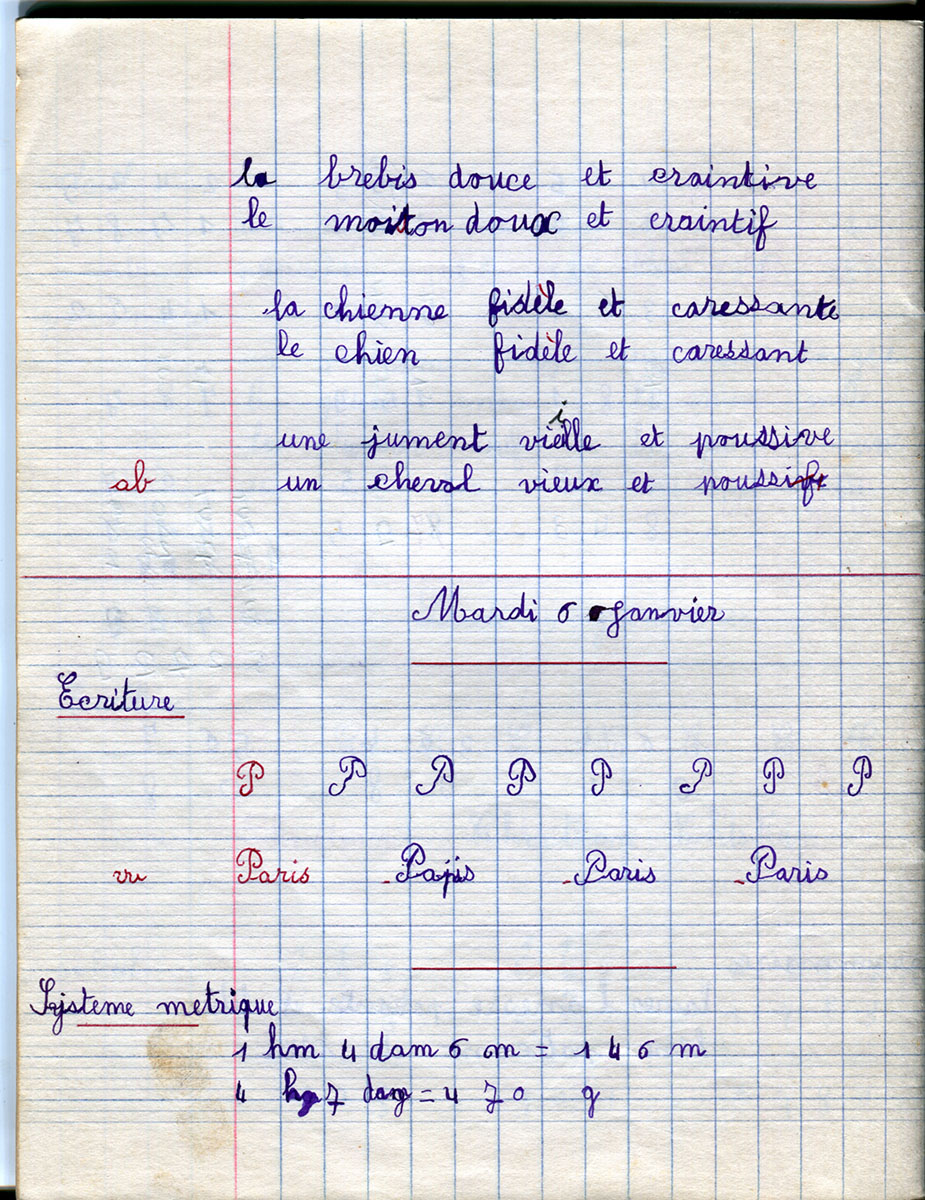 la brebis douce et craintive
le mouton doux et craintif
la chienne fidèle et caressante
le chien fidèle et caressant
une jument vieille et poussive
ab un cheval vieux et poussif
Mardi 6 janvier
Ecriture
P P P P P P P P
vu Paris Papis Paris Paris
Système metrique
1 hm 4 dam 6 m = 146 m
4 hg 7 dag = 470 g